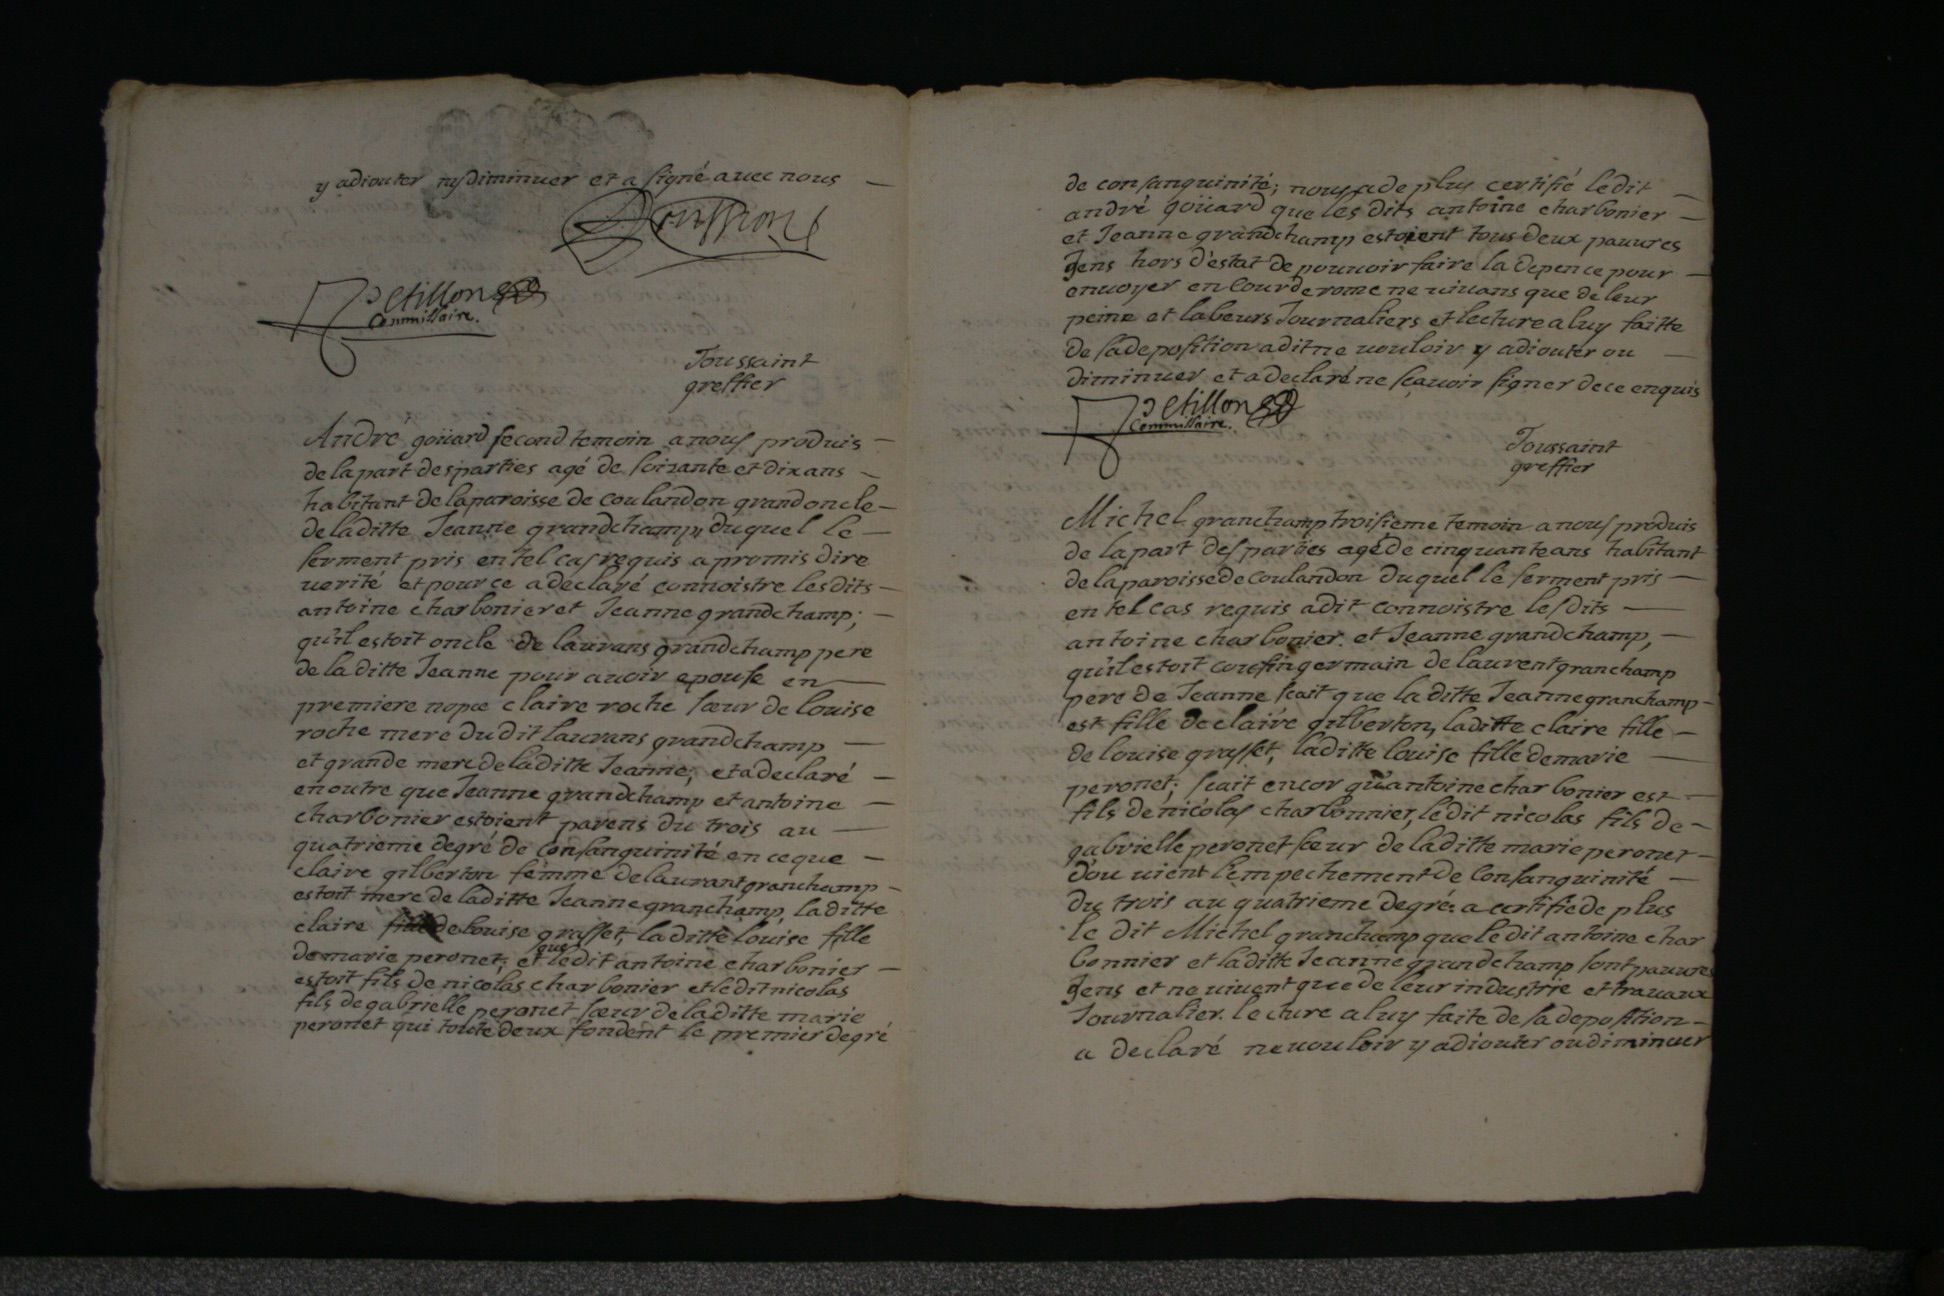 y adiouter ny diminuer et a signé avec nous
Petillon
Commissaire.
Toussaint
greffier
André goüard second temoin a nous produis
de la part des parties agé de soixante et dix ans
habitant de la paroisse de coulandon grand oncle
de laditte Jeanne grandchamp, duquel le
serment pris en tel cas requis a promis dire
verité et pour ce a declaré connoistre lesdits
antoine charbonier et Jeanne grandchamp;
qu'il estoit oncle de laurans grandchamp pere
de la ditte Jeanne pour avoir epousé en
premiere nopce claire roche sœur de louise
roche mere dudit laurans grandchamp
et grande mere de laditte Jeanne; et a declaré
en outre que Jeanne grandchamp et antoine
charbonier estoient parens du trois au
quatrieme degré de consanguinité en ce que
claire gilberton femme de laurant granchamp
estoit mere de laditte Jeanne granchamp, laditte
claire fille de louise grasset, laditte louise fille
de marie peronet; et que ledit antoine charbonier
estoit fils de nicolas charbonier et ledit nicolas
fils de gabrielle peronet sœur de laditte marie
peronet qui toute deux fondent le premier degré
de consanguinité; nous a de plus certifié ledit
andré goüard que les dits antoine charbonier
et Jeanne grandchamp estoient tous deux pauvres
gens hors d'estat de pouvoir faire la depence pour
envoyer en Cour de rome ne vivans que de leur
peine et labeurs Journaliers et lecture a luy faitte
de sa deposition a dit ne vouloir y adiouter ou
diminuer et a declaré ne sçavoir signer de ce enquis
Petillon
Commissaire.
Toussaint
greffier
Michel granchamp troisieme temoin a nous produis
de la part des parties agé de cinquante ans habitant
de la paroisse de coulandon duquel le serment pris
en tel cas requis a dit connoistre lesdits
antoine charbonier et Jeanne grandchamp,
qu'il estoit cousin germain de laurent granchamp
pere de Jeanne scait que la ditte Jeanne granchamp
est fille de claire gilberton, laditte claire fille
de louise grasset, laditte louise fille de marie
peronet; scait encor qu'antoine charbonier est
fils de nicolas charbonnier, ledit nicolas fils de
gabrielle peronet sœur de laditte marie peronet
d'ou vient l'empechement de Consanguinité
du trois au quatrieme degré; a certifié de plus
le dit Michel granchamp que ledit antoine char
bonnier et laditte Jeanne grandchamp sont pauvres
gens et ne vivent que de leur industrie et travaux
Journalier. lecture a luy faite de sa deposition
a declaré ne vouloir y adiouter ou diminuer